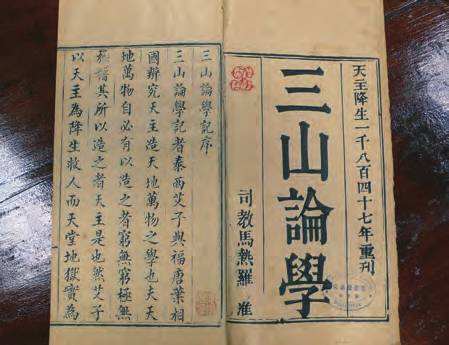 天主降生一千八百四十七年重刊
三山論學
司教馬熱羅 准
三山論學記序
三山論學記者泰西艾子與福唐葉相
國辯究天主造天地萬物之學也夫天
地萬物自必有以造之者窮無窮極無
極諸其所以造之者天主是也然艾子
以天主為降生救人而天堂地獄實為